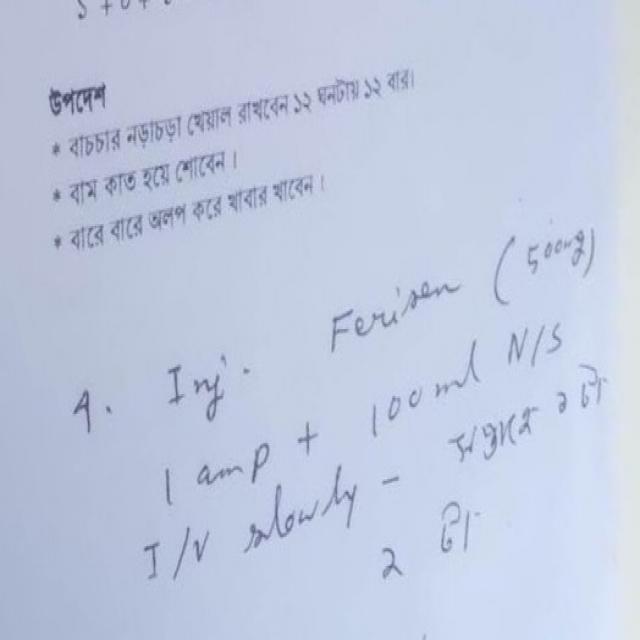 উপদেশ
* বাচ্চার নড়াচড়া খেয়াল রাখবেন ১২ ঘনটায় ১২ বার।
* বাম কাত হয়ে শোবেন।
* বারে বারে অলপ করে খাবার খাবেন।
4. Inj. Ferisen (500mg)
1 amp + 100 ml N/S
I/V slowly -
২ টা